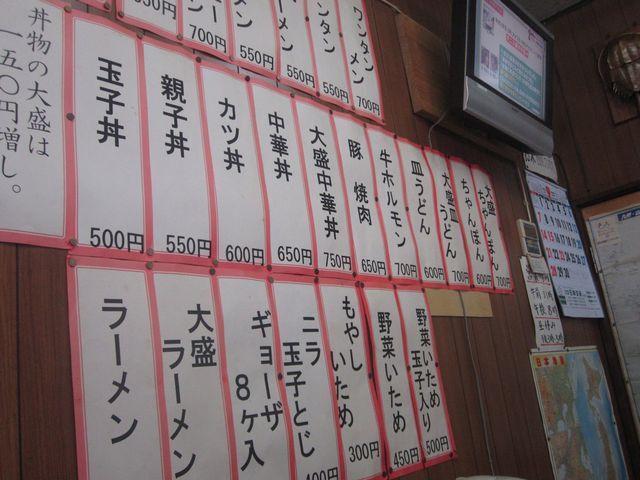 丼物の大盛は
一五〇円増し。
700円
ラーメン
550円
ワンタン
550円
ワンタンメン
700円
玉子丼
500円
親子丼
550円
カツ丼
600円
中華丼
650円
大盛中華丼
750円
豚 焼肉
650円
牛ホルモン
700円
皿うどん
600円
大盛皿うどん
700円
ちゃんぽん
600円
大盛ちゃんぽん
700円
ラーメン
大盛
ラーメン
ギョーザ
8ヶ入
ニラ
玉子とじ
400円
もやし
いため
300円
野菜いため
450円
野菜いため
玉子入り
500円
日本地図